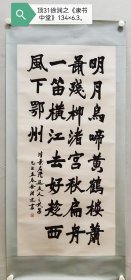 顶31徐润之《隶书
中堂》134×6.3。
明月烏啼黃鶴樓蕭
殘柳渚宮秋扁舟
一笛橫江去好趁西
風下鄂州